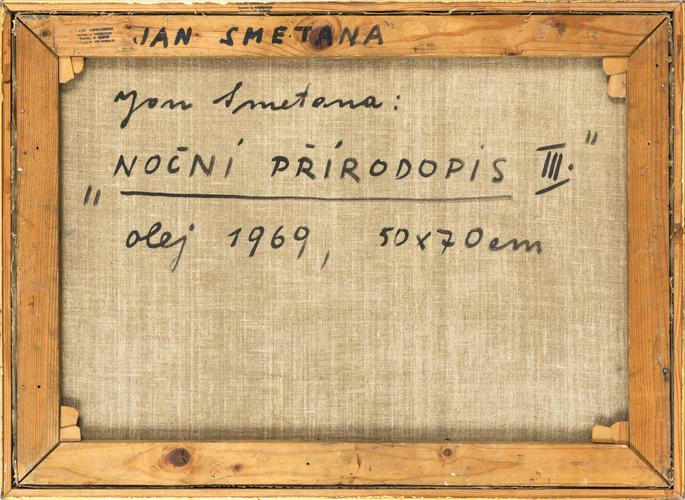 JAN SMETANA
Jan Smetana:
„NOČNÍ PŘÍRODOPIS III.“
olej 1969, 50x70cm